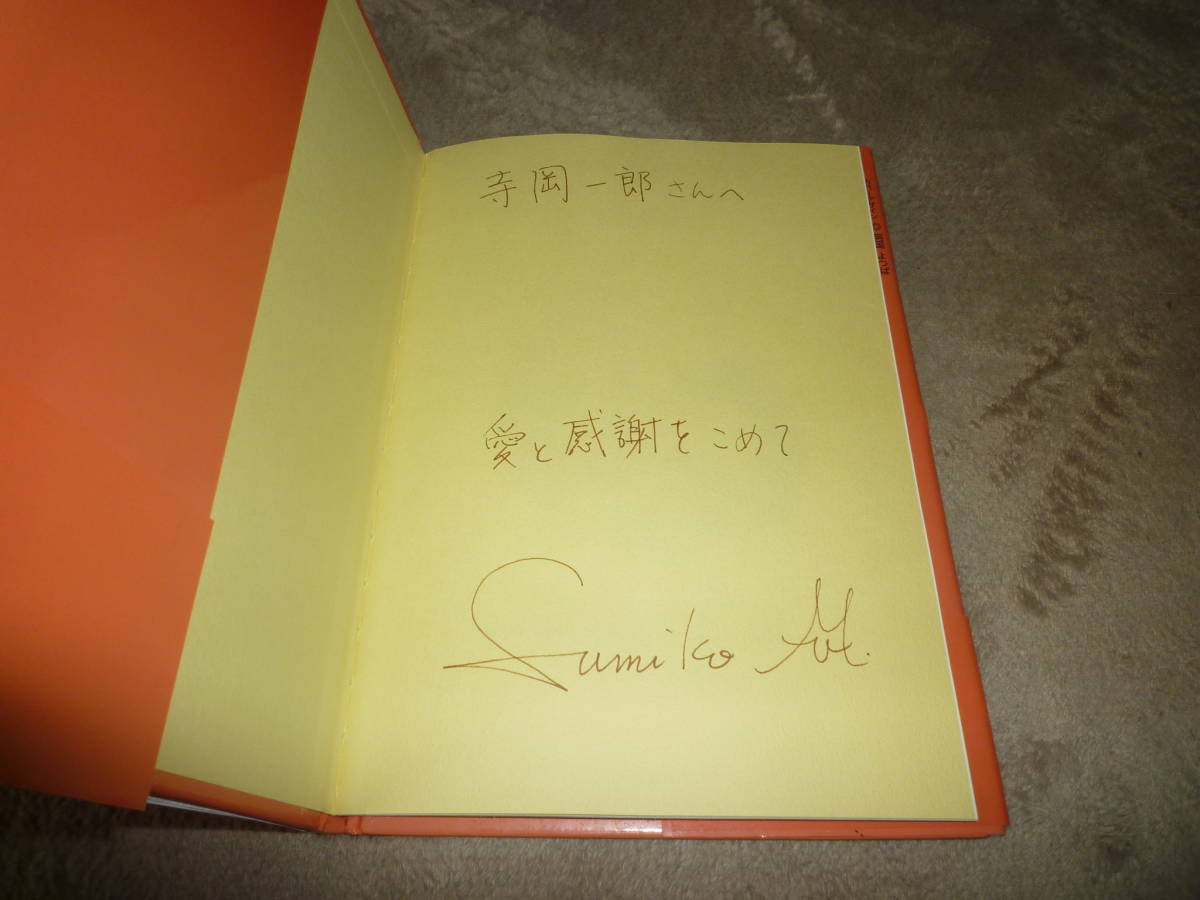 寺岡一郎さんへ
愛と感謝をこめて
Sumiko